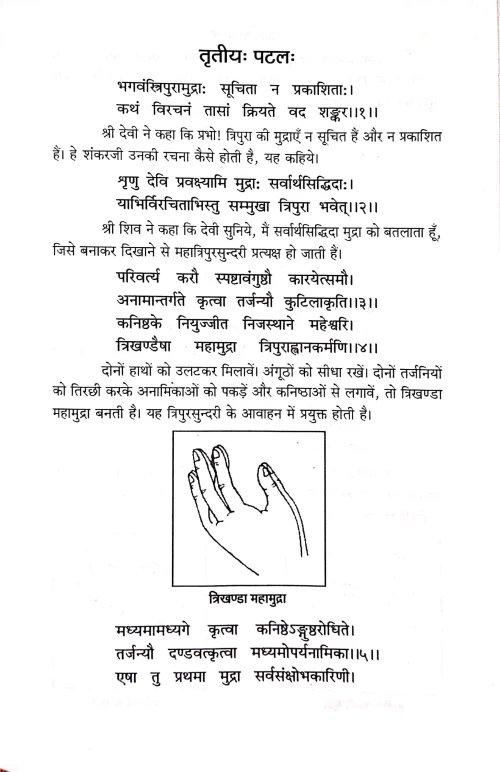 तृतीयः पटलः
भगवंस्त्रिपुरामुद्राः सूचिता न प्रकाशिताः।
कथं विरचनं तासां क्रियते वद शङ्कर।।१।।
श्री देवी ने कहा कि प्रभो! त्रिपुरा की मुद्राएँ न सूचित हैं और न प्रकाशित
हैं। हे शंकरजी उनकी रचना कैसे होती है, यह कहिये।
शृणु देवि प्रवक्ष्यामि मुद्राः सर्वार्थसिद्धिदाः।
याभिर्विरचिताभिस्तु सम्मुखा त्रिपुरा भवेत्।।२।।
श्री शिव ने कहा कि देवी सुनिये, मैं सर्वार्थसिद्धिदा मुद्रा को बतलाता हूँ,
जिसे बनाकर दिखाने से महात्रिपुरसुन्दरी प्रत्यक्ष हो जाती हैं।
परिवर्त्य करौ स्पष्टावंगुष्ठौ कारयेत्समौ।
अनामान्तर्गते कृत्वा तर्जन्यौ कुटिलाकृति।।३।।
कनिष्ठके नियुज्जीत निजस्थाने महेश्वरि।
त्रिखण्डैषा महामुद्रा त्रिपुराह्वानकर्मणि।।४।।
दोनों हाथों को उलटकर मिलावें। अंगूठों को सीधा रखें। दोनों तर्जनियों
को तिरछी करके अनामिकाओं को पकड़ें और कनिष्ठाओं से लगावें, तो त्रिखण्डा
महामुद्रा बनती है। यह त्रिपुरसुन्दरी के आवाहन में प्रयुक्त होती है।
त्रिखण्डा महामुद्रा
मध्यमामध्यगे कृत्वा कनिष्ठेऽङ्गुष्ठरोधिते।
तर्जन्यौ दण्डवत्कृत्वा मध्यमोपर्यनामिका।।५।।
एषा तु प्रथमा मुद्रा सर्वसंक्षोभकारिणी।